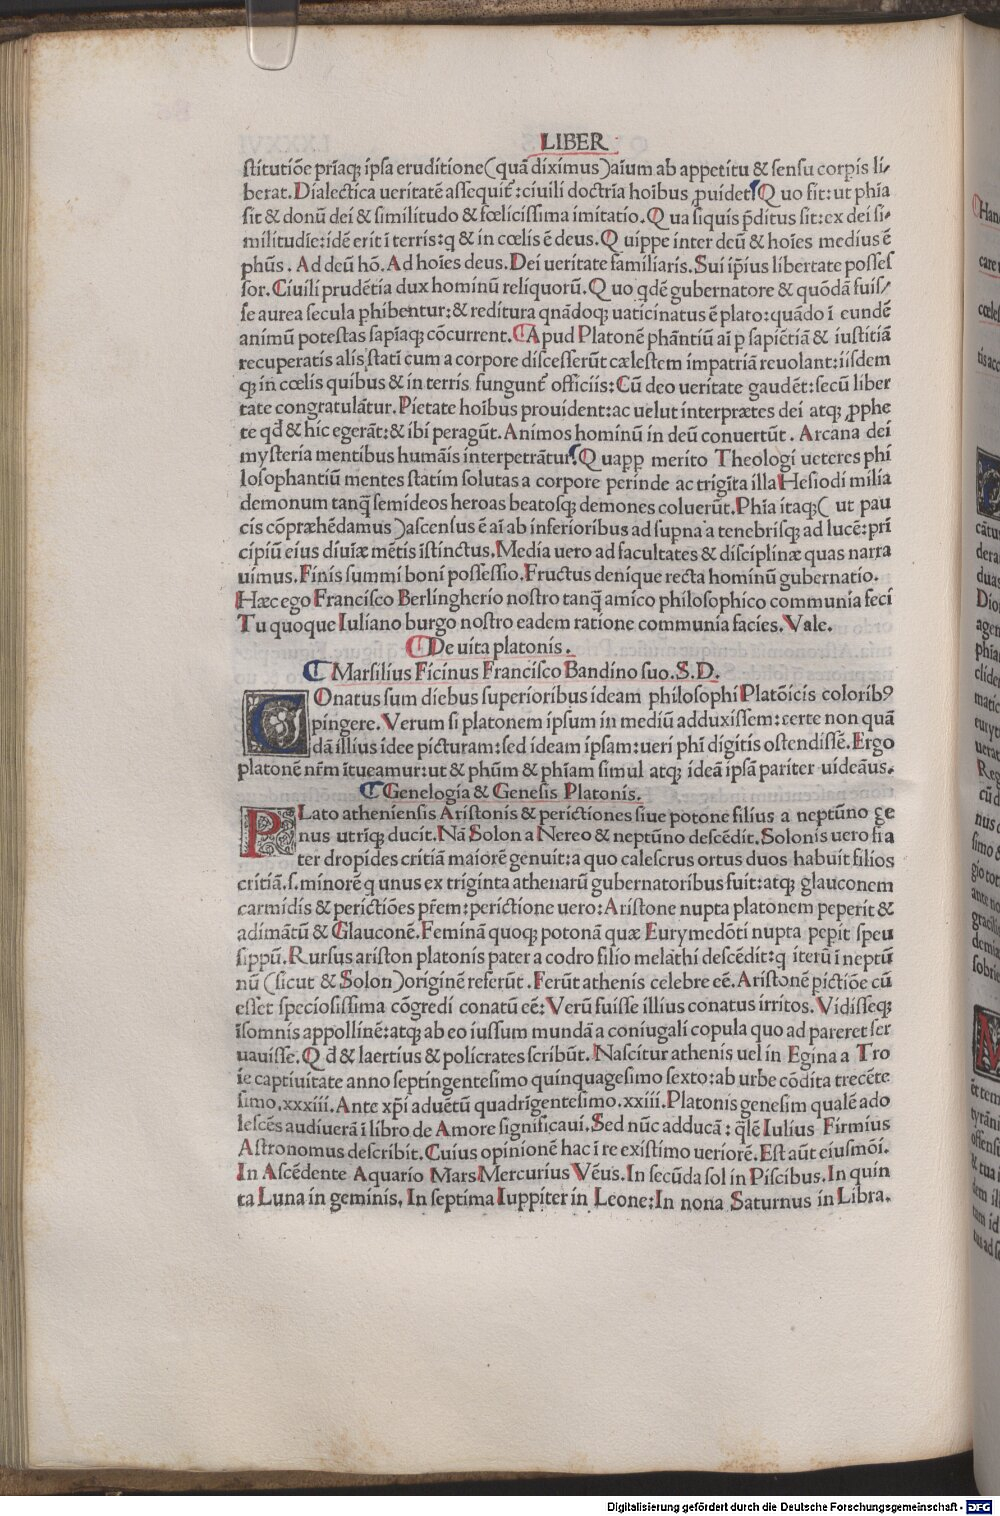 LIBER
stitutiõe prĩaqꝫ ipsa eruditione(quã diximus)aĩum ab appetitu & sensu corpis li/
berat.Dialectica ueritatẽ assequit̃:ciuili doctrĩa hoĩbus ꝓuidet Quo fit:ut phĩa
sit & donũ dei & similitudo & fœlicissima imitatio.Qua siquis p̃ditus sit:ex dei si/
militudĩe:idẽ erit ĩ terris:q̃ & in cœlis ẽ deus.Quippe inter deũ & hoĩes medius ẽ
phũs.Ad deũ hõ.Ad hoĩes deus.Dei ueritate familiaris.Sui ip̃ius libertate posses
sor.Ciuili prudẽtia dux hominũ reliquorũ.Quo q̃dẽ gubernatore & quõdã fuis/
se aurea secula ꝓhibentur:& reditura qñdoqꝫ uaticinatus ẽ plato:quãdo ĩ eundẽ
animũ potestas sapĩaqꝫ cõcurrent. Apud Platonẽ phãntiũ aĩ ꝑ sapiẽtiã & iustitiã
recuperatis alis statĩ cum a corpore discesserũt cælestem impatriã reuolant:iisdem
qꝫ in cœlis quibus & in terris fungunt̃ officiis:Cũ deo ueritate gaudẽt:secũ liber
tate congratulãtur.Pietate hoĩbus prouident:ac uelut interprætes dei atqꝫ ꝓphe
te qđ & hic egerãt:& ibi peragũt.Animos hominũ in deũ conuertũt.Arcana dei
mysteria mentibus humãis interpretrãtur.Quapp̱ merito Theologi ueteres phi
losophantiũ mentes statim solutas a corpore perinde ac trigĩta illa Hesiodi milia
demonum tanq̃ semideos heroas beatosqꝫ demones coluerũt.Phĩa itaqꝫ( ut pau
cis cõpræhẽdamus )ascensus ẽ aĩ ab inferioribus ad supna a tenebrisqꝫ ad lucẽ:pri
cipiũ eius diuĩæ mẽtis ĩstĩnctus.Media uero ad facultates & disciplinæ quas narra
uimus.Finis summi boni possessio.Fructus denique recta hominũ gubernatio.
Hæc ego Francisco Berlingherio nostro tanq̃ amico philosophico communia feci
Tu quoque Iuliano burgo nostro eadem ratione communia facies.Vale.
De uita platonis.
Marsilius Ficinus Francisco Bandino suo.S.D.
COnatus sum diebus superioribus ideam philosophi Platõicis coloribꝰ
pingere.Verum si platonem ipsum in mediũ adduxissem:certe non quã
dã illius idee picturam:sed ideam ipsam:ueri phĩ digitis ostendissẽ.Ergo
platonẽ nr̃m ĩtueamur:ut & phũm & phĩam simul atqꝫ ideã ipsã pariter uideãus.
Genelogia & Genesis Platonis.
PLato atheniensis Aristonis & perictiones siue potone filius a neptũno ge
nus utrĩqꝫ ducit.Nã Solon a Nereo & neptũno descẽdit.Solonis uero fra
ter dropides critiã maiorẽ genuit:a quo calescrus ortus duos habuit filios
critiã.s.minorẽ q̃ unus ex triginta athenarũ gubernatoribus fuit:atqꝫ glauconem
carmidis & perictiões pr̃em:perictione uero:Aristone nupta platonem peperit &
adimãtũ & Glauconẽ.Feminã quoqꝫ potonã quæ Eurymedõti nupta pepit speu
sippũ.Rursus ariston platonis pater a codro filio melãthi descẽdit:q iterũ ĩ neptũ
nũ (sicut & Solon)originẽ referũt.Ferũt athenis celebre eẽ.Aristonẽ pictiõe cũ
esset speciosissima cõgredi conatũ eẽ:Verũ fuisse illius conatus irritos.Vidisseqꝫ
ĩsomnis appollinẽ:atqꝫ ab eo iussum mundã a coniugali copula quo ad pareret ser
uauisse.Qđ & laertius & policrates scribũt.Nascitur athenis uel in Egina a Tro
ie captiuitate anno septingentesimo quinquagesimo sexto:ab urbe cõdita trecẽte
simo.xxxiii.Ante xp̃i aduẽtũ quadrĩgentesimo.xxiii.Platonis genesim qualẽ ado
lescẽs audiuerã ĩ libro de Amore significaui.Sed nũc adducã: q̃lẽ Iulius Firmius
Astronomus describit.Cuius opinionẽ hac ĩ re existimo ueriorẽ.Est aũt eiusmõi.
In Ascẽdente Aquario Mars Mercurius Vẽus.In secũda sol in Piscibus.In quin
ta Luna in geminis.In septima Iuppiter in Leone:In nona Saturnus in Libra.
Digitalisierung gefördert durch die Deutsche Forschungsgemeinschaft - DFG